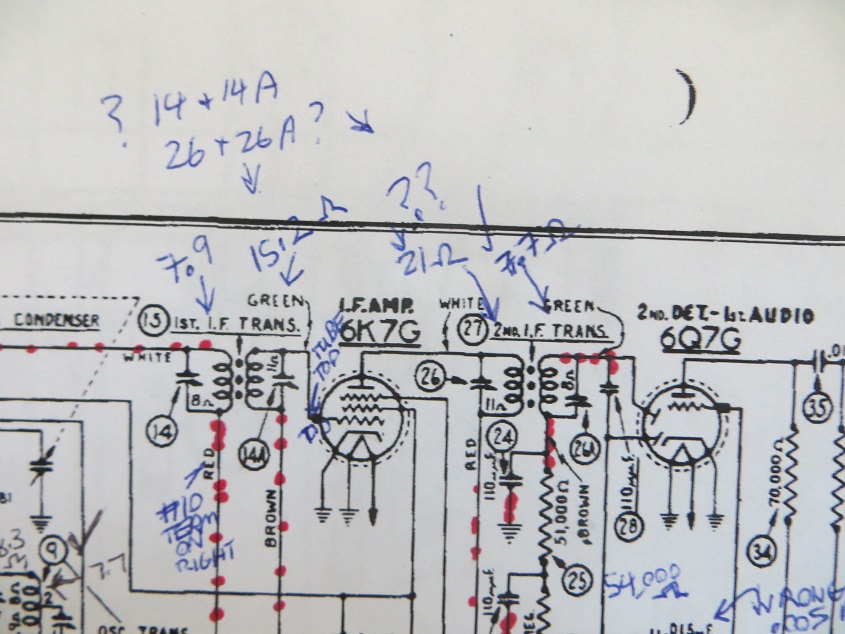 ? 14 + 14A
26 + 26A ?
? ?
7.9
15.2 Ω
21Ω
7.7Ω
CONDENSER
15
1ST. I.F. TRANS.
GREEN
I.F. AMP.
6K7G
WHITE
27
2ND. I.F. TRANS.
GREEN
2ND. DET.-1ST. AUDIO
6Q7G
WHITE
TUBE
TOP
8Ω
11Ω
14
14A
26
11Ω
8Ω
26A
35
24
110μμF
RED
BROWN
RED
51,000Ω
BROWN
110μμF
28
70,000Ω
34
#10
RIGHT
9
7.7
25
54,000
Ω
110μμF
MEG.
WRONG
OSC. TRANS.
.015MF